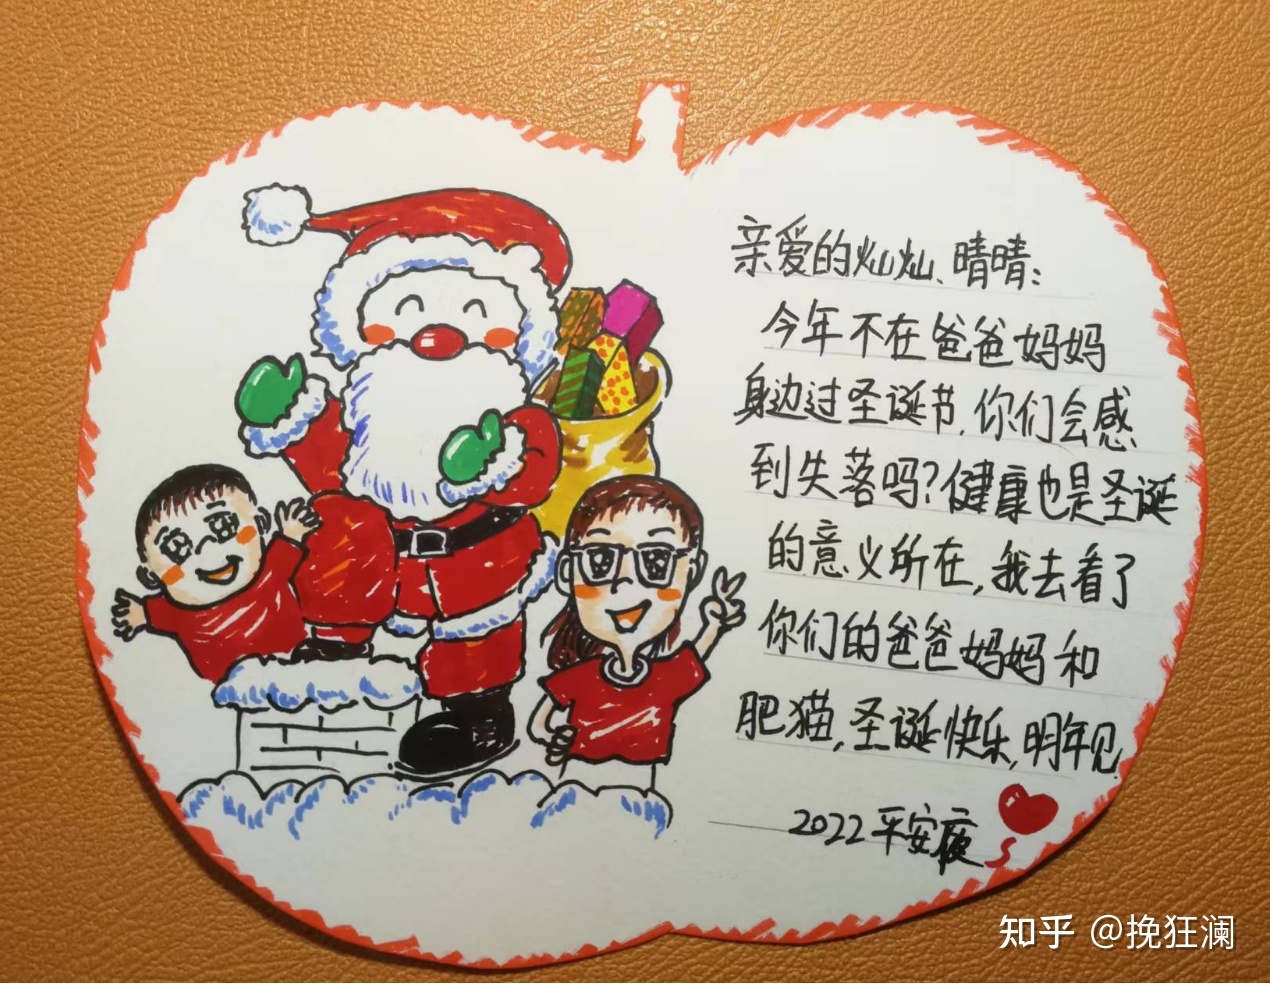 亲爱的灿灿、晴晴：
今年不在爸爸妈妈
身边过圣诞节，你们会感
到失落吗？健康也是圣诞
的意义所在，我去看了
你们的爸爸妈妈和
肥猫，圣诞快乐，明年见
2022平安夜
知乎 @挽狂澜